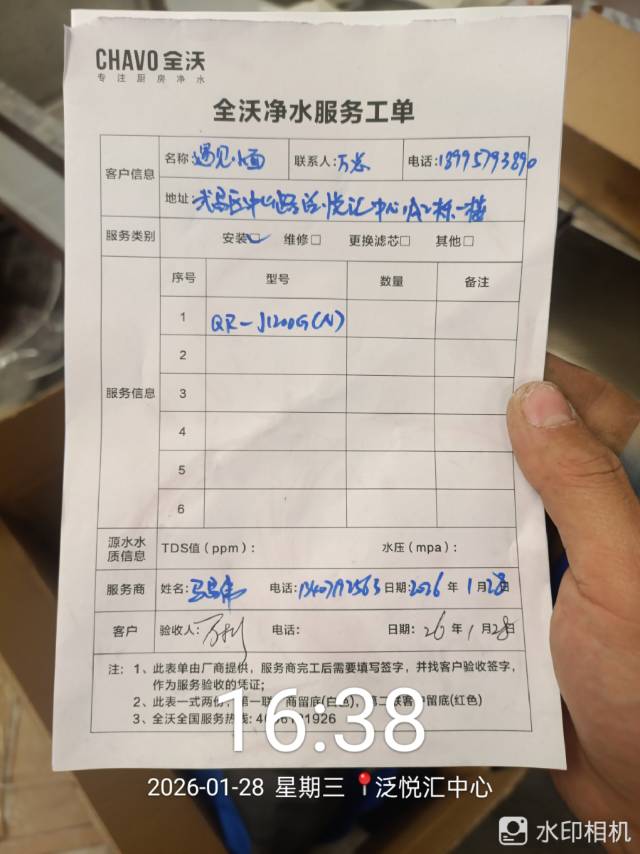 CHAVO 全沃
专注厨房净水
全沃净水服务工单
客户信息 名称: 遇见小面 联系人: 万总 电话: 18995793890
地址: 武昌区中山路泛悦汇中心
服务类别 安装☑ 维修□ 更换滤芯□ 其他□
服务信息 序号 型号 数量 备注
1 QR-J1200G(N)
2
3
4
5
6
源水水质信息 TDS值(ppm): 水压(mpa):
服务商 姓名: 电话: 日期: 2026年1月28日
客户 验收人: 电话: 日期: 26年1月28日
注: 1、此表单由厂商提供,服务商完工后需要填写签字,并找客户验收签字,
作为服务验收的凭证;
2、此表一式两份,第一联 商留底(白色),第二联客户留底(红色)
3、全沃全国服务热线: 1926
16:38
2026-01-28 星期三 泛悦汇中心
水印相机